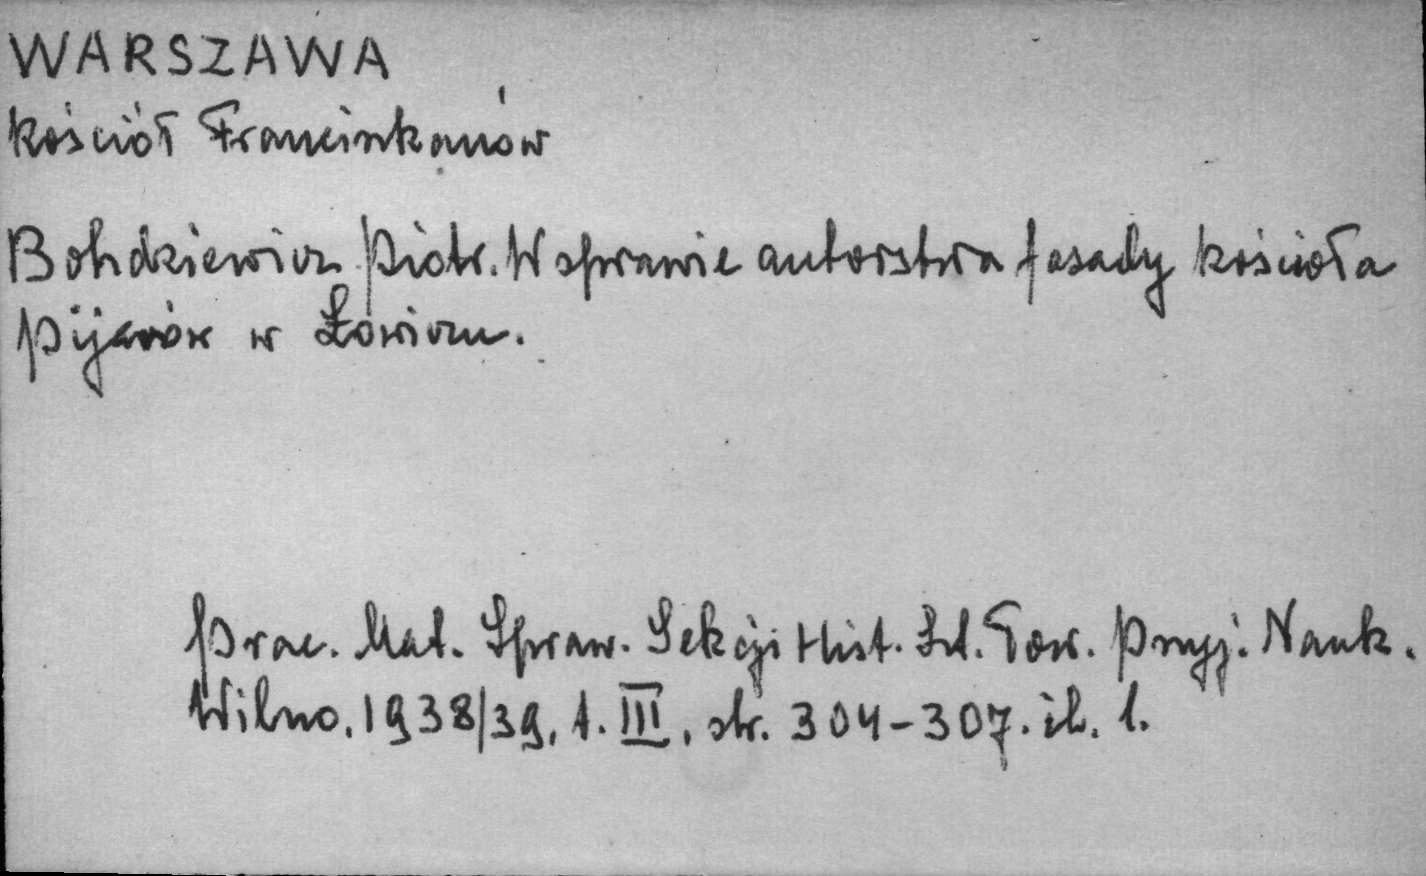 WARSZAWA
kościół Franciszkanów
Bohdziewicz Piotr. W sprawie autorstwa fasady kościoła
Pijarów w Łowiczu.
Prac. Mat. Spraw. Sekcji Hist. Szt. Tow. Przyj. Nauk.
Wilno. 1938/39, t. III, str. 304-307. il. 1.